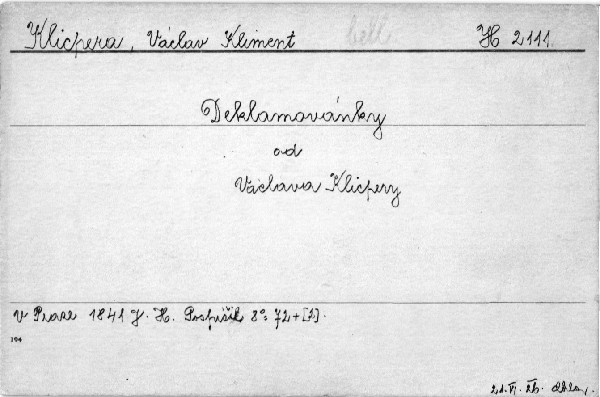 Klicpera, Václav Kliment bell. H 2111.
Deklamovánky
od
Václava Klicpery
v Praze 1841 J. H. Pospíšil 8° 72+[2].
104
21. VI. 26.